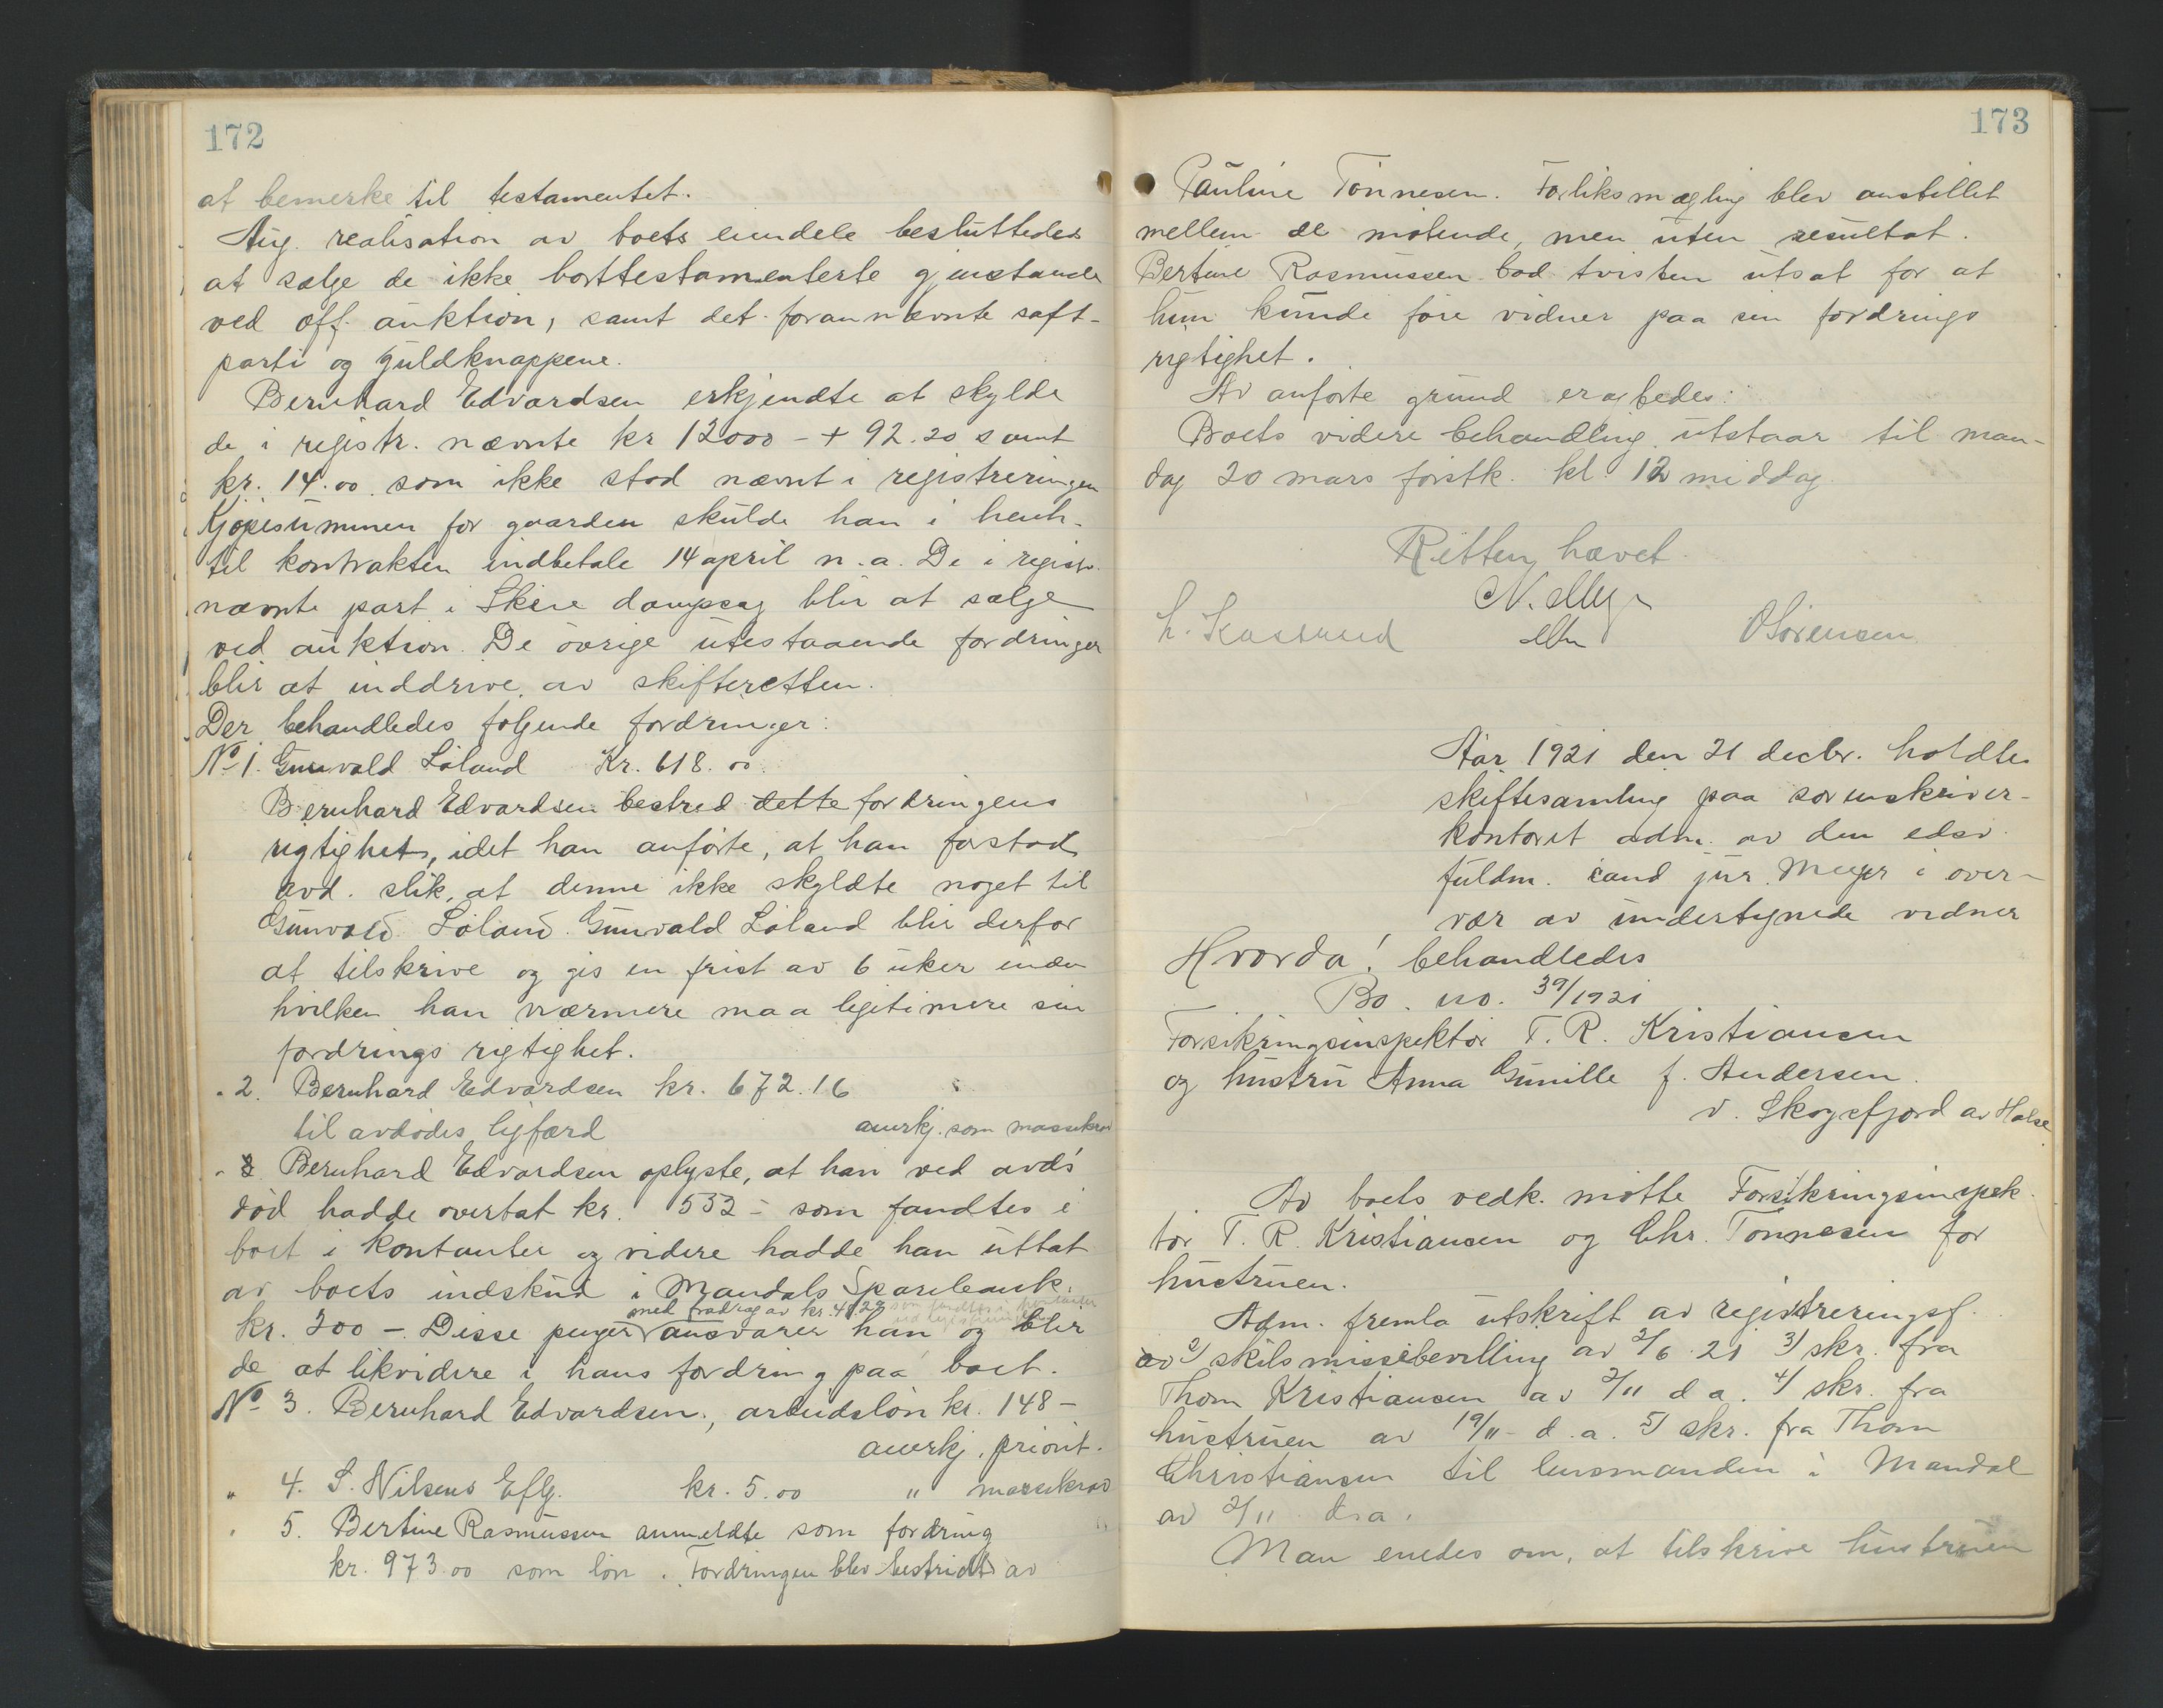 172
at bemerke til testamentet.
Ang. realisation av boets eiendele besluttedes
at sælge de ikke borttestamenterte gjenstande
ved off. auktion, samt det forannævnte saft-
parti og guldknappene.
Bernhard Edvardsen erkjendte at skylde
de i registr. nævnte kr 12000 - + 92.20 samt
kr. 14.00 som ikke stod nævnt i registreringen
Kjøpesummen for gaarden skulde han i henh.
til kontrakten indbetale 14 april n.a. De i registr.
nævnte part i Skere dampsag blir at sælge
ved auktion. De øvrige utestaaende fordringer
blir at inddrive av skifteretten.
Der behandledes følgende fordringer:
No 1. Gunvald Løland Kr. 618.00.
Bernhard Edvardsen bestred dette fordringens
rigtighet, idet han anførte, at han forstod
avd. slik, at denne ikke skyldte noget til
Gunvald Løland. Gunvald Løland blir derfor
at tilskrive og gis en frist av 6 uker inden
hvilken han nærmere maa legitimere sin
fordrings rigtighet.
" 2. Bernhard Edvardsen kr. 672.16
til avdødes ligfærd anerkj. som massekrav
Bernhard Edvardsen oplyste, at han ved avd's
død hadde overtat kr. 532 - som fandtes i
boet i kontanter og videre hadde han uttat
av boets indskud i Mandals Sparebank
med fradrag av kr. 41.22 som fandtes i kontanter
kr. 200 -. Disse penger ansvarer han og blir
de at likvidere i hans fordring paa boet.
No 3. Bernhard Edvardsen, arbeidsløn kr. 148 -
anerkj. priorit.
" 4. S. Nilsens Eftf. kr. 5.00 " massekrav
" 5. Bertine Rasmussen anmeldte som fordring
kr. 973.00 som løn. Fordringen blev bestridt av
173
Pauline Tønnesen. Forliksmægling blev anstillet
mellem de møtende, men uten resultat.
Bertine Rasmussen bad tvisten utsat for at
hun kunde føre vidner paa sin fordrings
rigtighet.
Av anførte grund eragtedes:
Boets videre behandling utstaar til man-
dag 20 mars førstk. kl. 12 middag.
Retten hævet.
N. Meyer
OSørensen
Aar 1921 den 21 decbr. holdtes
skiftesamling paa sorenskriver-
kontoret adm. av den edsv.
fuldm. cand jur. Meyer i over-
vær av undertegnede vidner
Hvorda! behandledes
Bo. no. 39/1921
Forsikringsinspektør T. R. Kristiansen
og hustru Anna Gunille f. Andersen
v. Skogsfjord av Halse
Av boets vedk. møtte Forsikringsinspek-
tør T. R. Kristiansen og Chr. Tønnesen for
hustruen.
Adm. fremla utskrift av registreringsf.
av 2) skilsmissebevilling av 2/6 21 3) skr. fra
Thom Kristiansen av 2/11 d.a. 4) skr. fra
hustruen av 19/11 - d.a. 5) skr. fra Thom
Christiansen til lensmanden i Mandal
av 2/11 d.a.
Man enedes om, at tilskrive hustruen